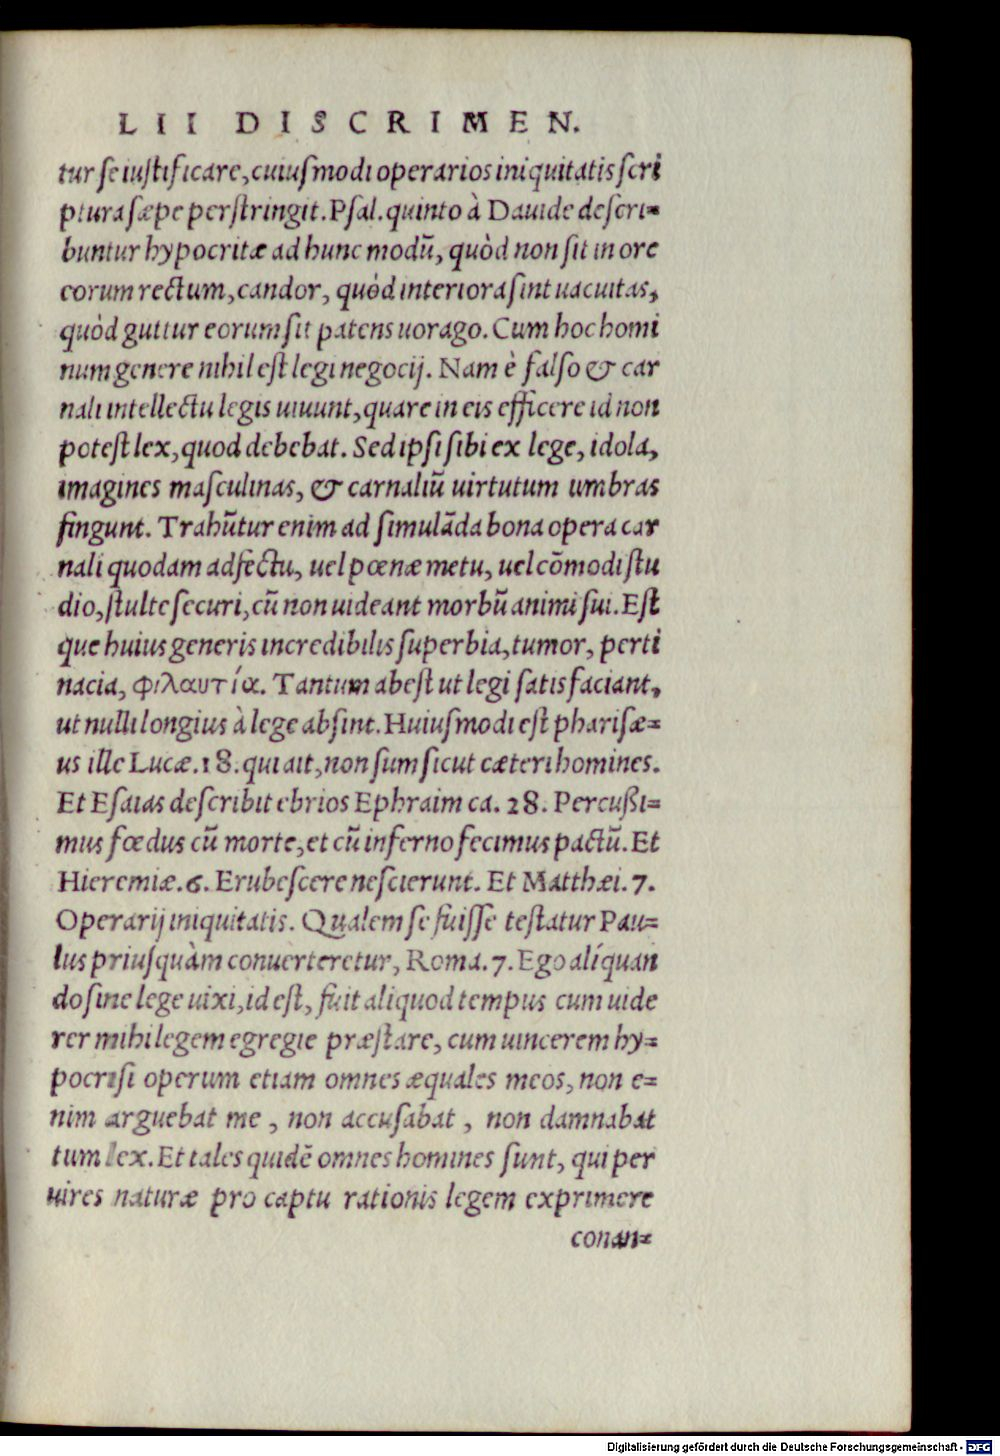 LII DISCRIMEN.
tur se iustificare, cuiusmodi operarios iniquitatis scri
ptura sæpe perstringit. Psal. quinto à Dauide descri-
buntur hypocritæ ad hunc modũ, quòd non sit in ore
eorum rectum, candor, quòd interiora sint uacuitas,
quòd guttur eorum sit patens uorago. Cum hoc homi
num genere nihil est legi negocij. Nam è falso & car
nali intellectu legis uiuunt, quare in eis efficere id non
potest lex, quod debebat. Sed ipsi sibi ex lege, idola,
imagines masculinas, & carnaliũ uirtutum umbras
fingunt. Trahũtur enim ad simulãda bona opera car
nali quodam adfectu, uel pœnæ metu, uel cõmodi stu
dio, stulte securi, cũ non uideant morbũ animi sui. Est
que huius generis incredibilis superbia, tumor, perti
nacia, φιλαυτία. Tantum abest ut legi satisfaciant,
ut nulli longius à lege absint. Huiusmodi est pharisæ-
us ille Lucæ. 18. qui ait, non sum sicut cæteri homines.
Et Esaias describit ebrios Ephraim ca. 28. Percußi-
mus fœdus cũ morte, et cũ inferno fecimus pactũ. Et
Hieremiæ. 6. Erubescere nescierunt. Et Matthæi. 7.
Operarij iniquitatis. Qualem se fuisse testatur Pau-
lus priusquàm conuerteretur, Roma. 7. Ego alíquan
do sine lege uixi, id est, fuit aliquod tempus cum uide
rer mihi legem egregie præstare, cum uincerem hy-
pocrisi operum etiam omnes æquales meos, non e-
nim arguebat me, non accusabat, non damnabat
tum lex. Et tales quidẽ omnes homines sunt, qui per
uires naturæ pro captu rationis legem exprimere
conan-
Digitalisierung gefördert durch die Deutsche Forschungsgemeinschaft - DFG